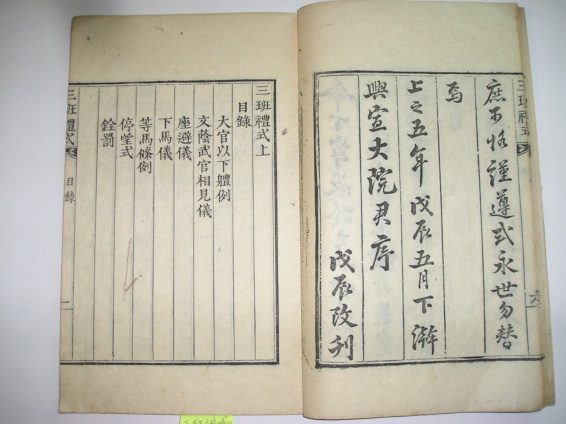 三班禮式
庶可恪謹遵式永世勿替
焉
上之五年戊辰五月下澣
興宣大院君序
戊辰改刊
三班禮式上
目錄
大官以下軆例
文蔭武官相見儀
座避儀
下馬儀
等馬條例
停堂式
銓罰
三班軆式
目錄
一